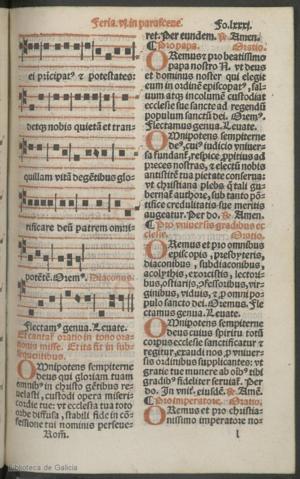 Feria. vj. in parasceue. Fo. lxxxj.
ei pricipatꝰ ⁊ potestates:
detqꝫ nobis quietã et tran-
quillam vitã degẽtibus glo-
rificare deũ patrem omni-
potẽtẽ. Oremꝰ. Diaconus.
Flectamꝰ genua. Leuate.
Et cantat̃ oratio in tono ora-
tionis misse. Et ita fit in subse
sequentibus.
Omnipotens sempiterne
deus qui gloriam tuam
omnibꝰ in christo gẽtibus re-
uelasti, custodi opera miseri
cordie tue: vt ecclesia tua toto
orbe diffusa, stabili fide in cõ-
fessione tui nominis perseue-
Rom.
ret. Per eundem. ℟. Amen.
Pro papa. Oratio.
Oremus ⁊ pro beatissimo
papa nostro N. vt deus
et dominus noster qui elegit
eum in ordine episcopatꝰ, sal-
uum atqꝫ incolumẽ custodiat
ecclesie sue sancte ad regendũ
populum sanctũ dei. Oremꝰ.
Flectamus genua. Leuate.
Omnipotens sempiterne
deꝰ, cuiꝰ iudicio vniuer-
sa fundant̃, respice ꝓpitius ad
preces nostras, ⁊ electũ nobis
antistitẽ tua pietate conserua-
vt christiana plebs q̃ tali gu-
bernat̃ authore, sub tanto põ-
tifice credulitatis sue meritis
augeatur. Per do. ℟. Amen.
Pro vniuersis gradibus ec
clesie. Oratio.
Oremus et pro omnibus
episcopis, presbyteris,
diaconibus, subdiaconibus,
acolythis, exorcistis, lectori-
bus, ostiarijs, ꝯfessoribus, vir-
ginibus, viduis, ⁊ ꝓ omni po-
pulo sancto dei. Oremus. Fle
ctamus genua. Leuate.
Omnipotens sempiterne
deus cuius spiritu totũ
corpus ecclesie sanctificatur ⁊
regitur, exaudi nos ꝓ vniuer-
sis ordinibus supplicantes: vt
gratie tue munere ab oĩbꝰ tibi
gradibꝰ fideliter seruiat̃. Per
do. In vnit̃. eiusdẽ. ℟. Amẽ.
Pro imperatore. Oratio.
Oremus et pro christia-
nissimo imperatore no-
l
Biblioteca de Galicia